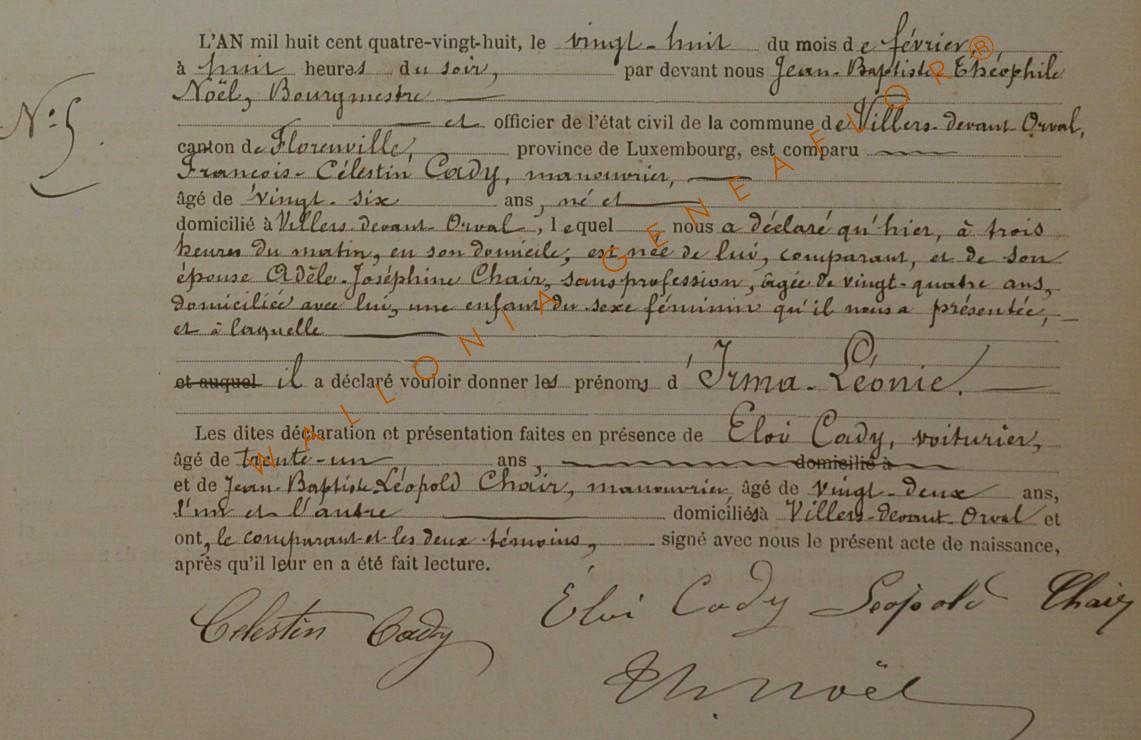 L'AN mil huit cent quatre-vingt-huit, le vingt-huit du mois de février,
à huit heures du soir, par devant nous Jean-Baptiste Théophile
Noël, Bourgmestre
N° 5.
et officier de l'état civil de la commune de Villers-devant-Orval,
canton de Florenville, province de Luxembourg, est comparu
François-Célestin Cady, manouvrier,
âgé de vingt-six ans, né et
domicilié à Villers-devant-Orval, lequel nous a déclaré qu'hier, à trois
heures du matin, en son domicile, est née de lui, comparant, et de son
épouse Adèle-Joséphine Chair, sans profession, âgée de vingt-quatre ans,
domiciliée avec lui, une enfant du sexe féminin qu'il nous a présentée,
et à laquelle
et auquel il a déclaré vouloir donner les prénoms d'Irma-Léonie.
Les dites déclaration et présentation faites en présence de Eloi Cady, voiturier,
âgé de trente-un ans, domicilié à
et de Jean-Baptiste Léopold Chair, manouvrier, âgé de vingt-deux ans,
l'un et l'autre domiciliés à Villers-devant-Orval et
ont, le comparant et les deux témoins, signé avec nous le présent acte de naissance,
après qu'il leur en a été fait lecture.
Célestin Cady Éloi Cady Léopold Chair
Th. Noël
WALLONIA GENEAFLOR®